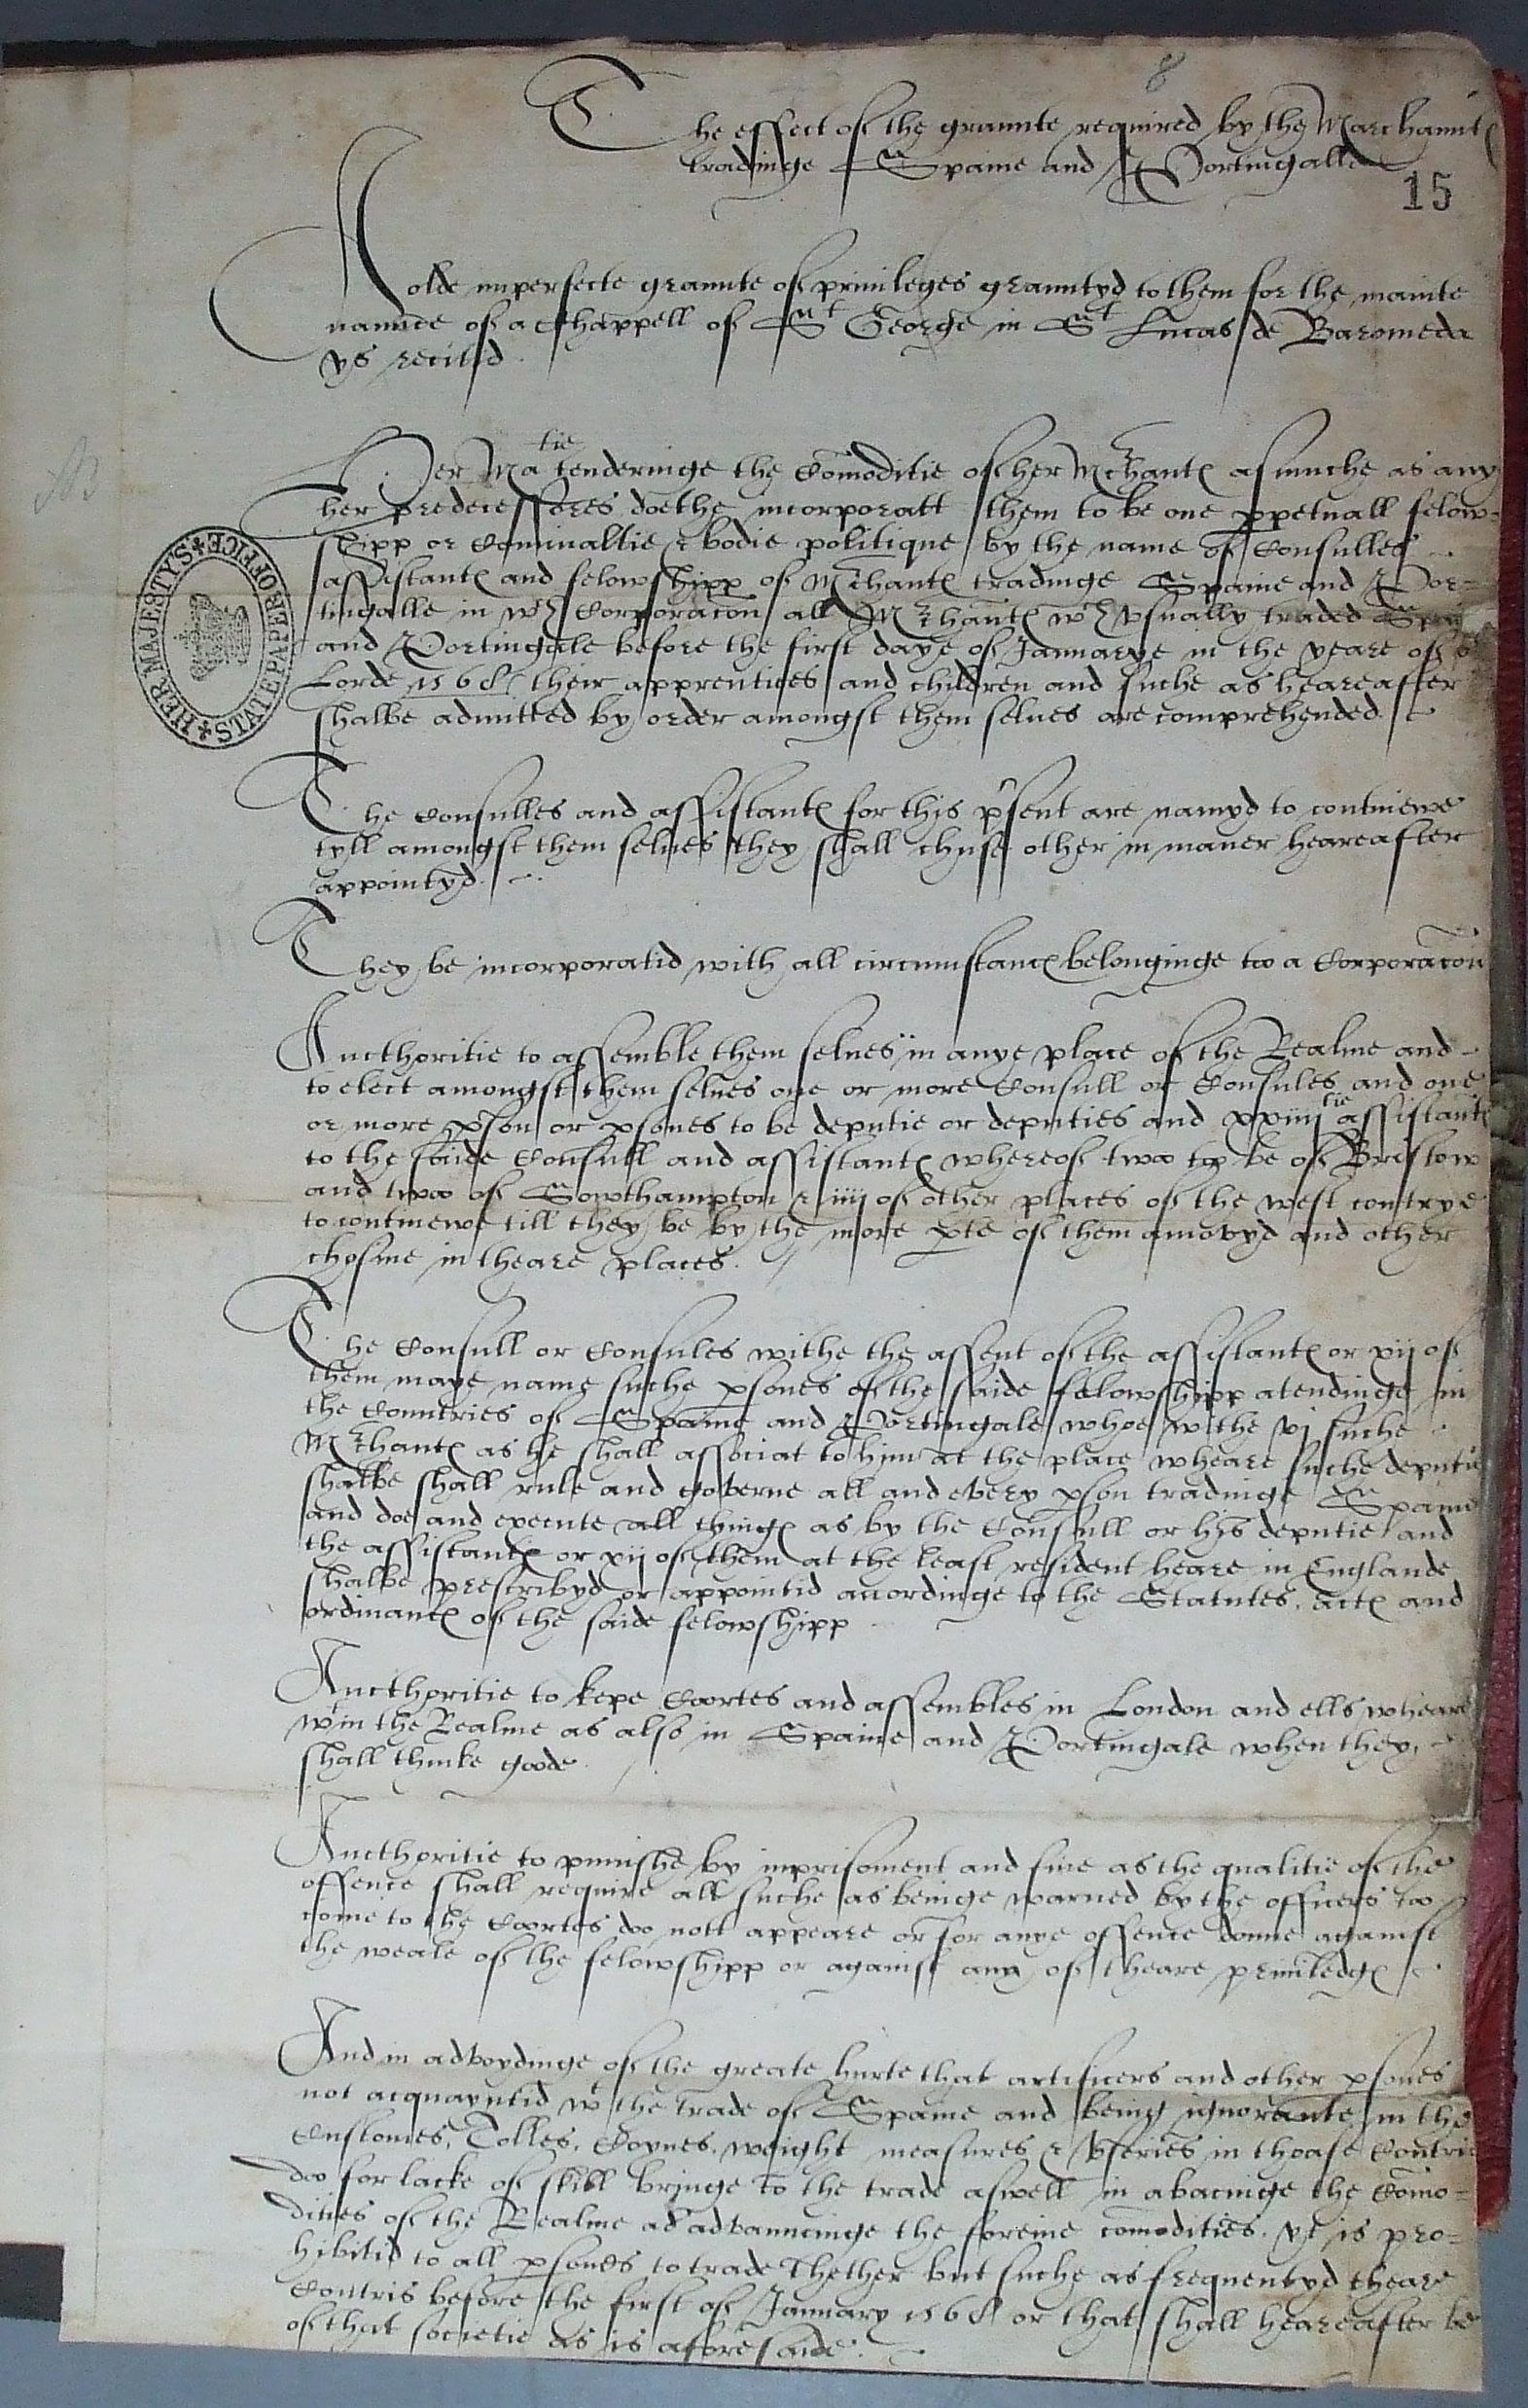 8
The effect of the graunte required by the Marchaunts
tradinge Spaine and Portingalle
15
A olde imperfecte graunte of priuileges grauntyd to them for the mainte
naunce of a Chappell of St George in St Lucas de Baromeda
ys recityd.
Her Matie tenderinge the comoditie of her Mrchants asmuche as any
her predecessores doethe incorporatt them to be one ppetuall felow-
shipp or cominaltie & bodie politique by the name of Consulles
assistants and felowshipp of Mrchants tradinge Spaine and Por-
tingalle in wch Corporacon all Mrchants wch vsually traded Spai
and Portingale before the first daye of Januarye in the yeare of or
Lorde 1568 their apprentices and children and suche as heareafter
shalbe admitted by order amongst them selues are comprehended.
HER MAJESTY'S STATE PAPER OFFICE
The consulles and assistants for this psent are namyd to continewe
tyll amongst them selues they shall chuse other in maner heareafter
appointyd.
They be incorporatid with all circumstancs belonginge too a Corporacon
Aucthoritie to assemble them selues in anye place of the Realme and
to elect amongst them selues one or more Consull or Consules and one
or more pson or psones to be deputie or deputies and xxiiijtie assistants
to the saide Consull and assistants whereof twoo too be of Bristow
and twoo of Sowthampton & iiij of other places of the west contrye
to continewe till they be by the more pte of them amovyd and other
chosine in theare places.
The Consull or Consules withe the assent of the assistants or xij of
them maye name suche psones of the saide felowshipp atendinge in
the Countries of Spaine and Portingale whoe withe vj suche
Mrchants as he shall associat to him at the place wheare suche deputie
shalbe shall rule and governe all and every pson tradinge Spaine
and doe and execute all things as by the Consull or his deputie and
the assistants or xij of them at the least resident heare in Englande
shalbe prescribyd or appointid accordinge to the Statutes, acts and
ordinancs of the saide felowshipp
Aucthoritie to kepe Coortes and assembles in London and ells wheare
wtin the Realme as also in Spaine and Portingale when they
shall thinke goode.
Aucthoritie to punishe by inprisoment and fine as the qualitie of the
offence shall require all suche as beinge warned by the officers too
come to the Coortes doo nott appeare or for anye offence donne against
the weale of the felowshipp or against any of theare priuiledgs
And in advoydinge of the greate hurte that artificers and other psones
not acquayntid wt the trade of Spaine and being ignorante in the
Customes, Tolles, Coynes, weight measures & vseries in thoase Contrie
doo for lacke of skill bringe to the trade aswell in abacinge the Como-
dities of the Realme as advauncinge the foreine comodities. yt is pro-
hibitid to all psones to trade thether but suche as frequentyd theare
Contris before the first of January 1568 or that shall heareafter be
of that societie as is aforesaide.